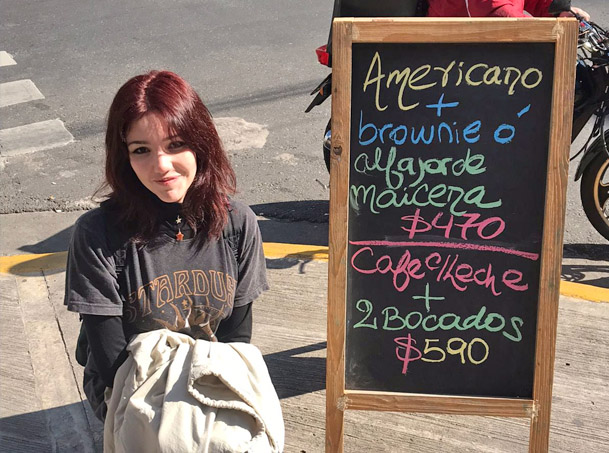 STARDUS
Americano
+
brownie ó
alfajor de
maicena
$470
Cafe c/leche
+
2 Bocados
$590